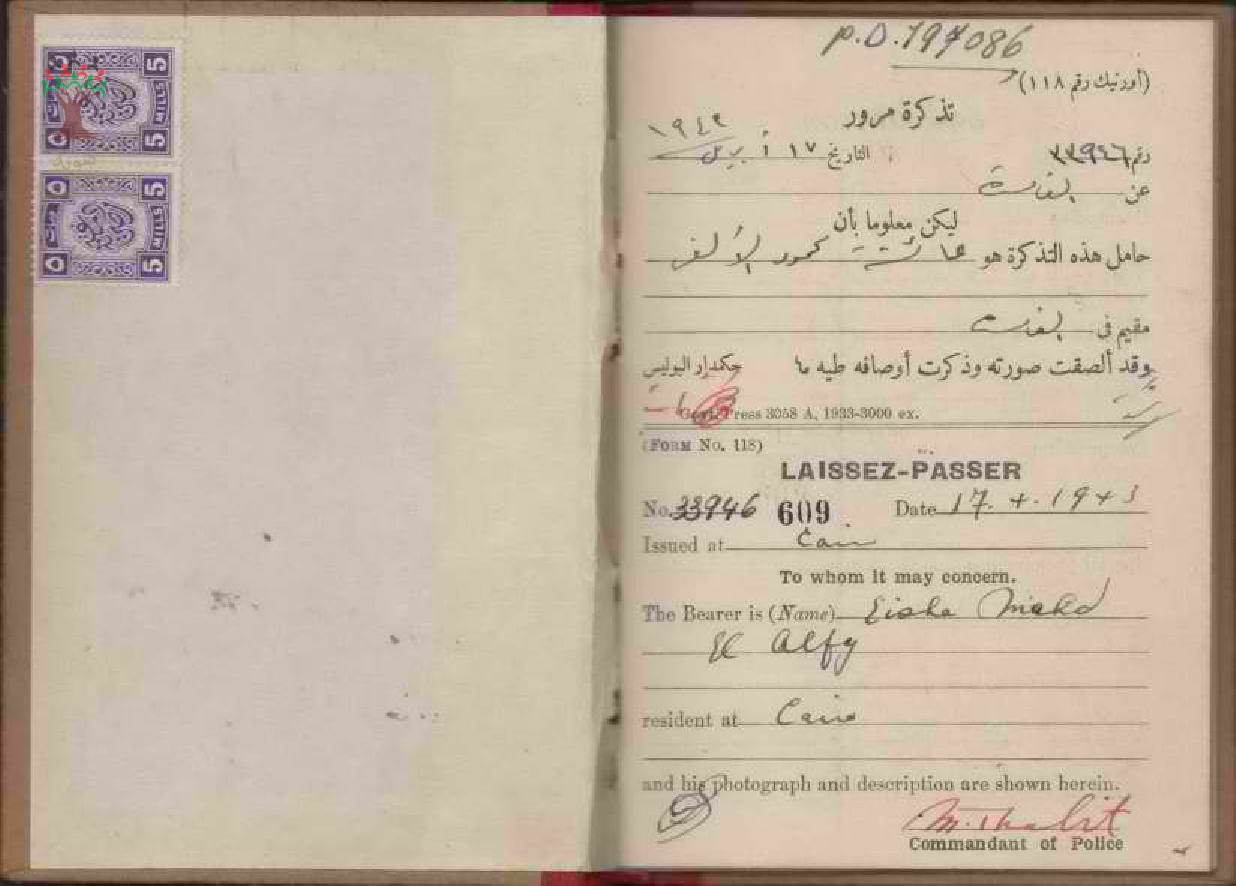 5
5
MILLS
5
5
MILLS
P.D. 197086
(أورنيك رقم ١١٨)
تذكرة مرور
رقم ٣٣٩٤٦ التاريخ ١٧ أبريل ١٩٤٣
عن القاهرة
ليكن معلوما بأن
حامل هذه التذكرة هو عائشة محمود الألفى
مقيم فى القاهرة
وقد ألصقت صورته وذكرت أوصافه طيه ما
حكمدار البوليس
Govt. Press 3058 A, 1933-3000 ex.
(FORM No. 118)
LAISSEZ-PASSER
No. 33946 609 Date 17.4.1943
Issued at Cairo
To whom it may concern.
The Bearer is (Name) Eisha Mahd
El Alfy
resident at Cairo
and his photograph and description are shown herein.
M. Thabit
Commandant of Police